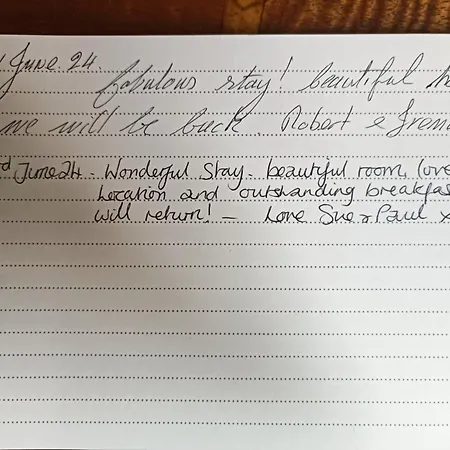 June 24. fabulous stay! beautiful
we will be back. Robert &
June 24 - Wonderful Stay - beautiful room,
Location and outstanding
will return! - Love Sue & Paul x